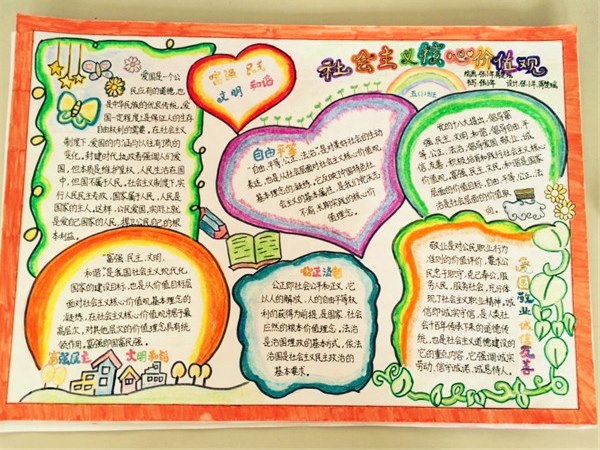 社会主义核心价值观
五(1)班
富强 民主
文明 和谐
爱国是一个公
民应有的道德,也
是中华民族的优良传统,爱
国一定程度上是保证人的生存
自由权利的需要。在社会主义
制度下,爱国的内涵与以往有质的
变化。封建时代,
国,但本质是维护皇权,人民生活在国
中,但国不属于人民。社会主义制度下,实
行人民民主专政,国家属于人民,人民是
国家的主人。这样,公民爱国,实际上就
是爱自己国家的人民,
本利益。
自由 平等
“自由、平等、公正、法治”,是对美好社会的生动
表述,也是从社会层面对社会主义核心价值观
基本理念的凝练。它反映了中国特色社
会主义的基本属性,是我们党矢志
不渝、长期实践的核心价
值理念。
党的十八大提出,倡导富
强、民主、文明、和谐,倡导自由、平
等、公正、法治,倡导爱国、敬业、诚
信、友善,积极培育和践行社会主义核心
价值观。富强、民主、文明、和谐是国家
层面的价值目标,自由、平等、公正、法
治是社会层面的价值取
向。
“富强、民主、文明、
和谐”,是我国社会主义现代化
国家的建设目标,也是从价值目标层
面对社会主义核心价值观基本理念的
凝练,在社会主义核心价值观中居于最
高层次,对其他层次的价值理念具有统
领作用。富强即国富民强。
富强民主 文明和谐
公正法制
公正即社会公平和正义,它
以人的解放、人的自由平等权
利的获得为前提,是国家、社会
应然的根本价值理念。法治
是治国理政的基本方式,依法
治国是社会主义民主政治的
基本要求。
敬业是对公民职业行为
准则的价值评价,要求公
民忠于职守,克己奉公,服
务人民,服务社会,充分体
现了社会主义职业精神。诚
信即诚实守信,是人类社
会千百年传承下来的道德传
统,也是社会主义道德建设的
它的重点内容,它强调诚实
劳动、信守承诺、诚恳待人。
爱国敬业诚信友善